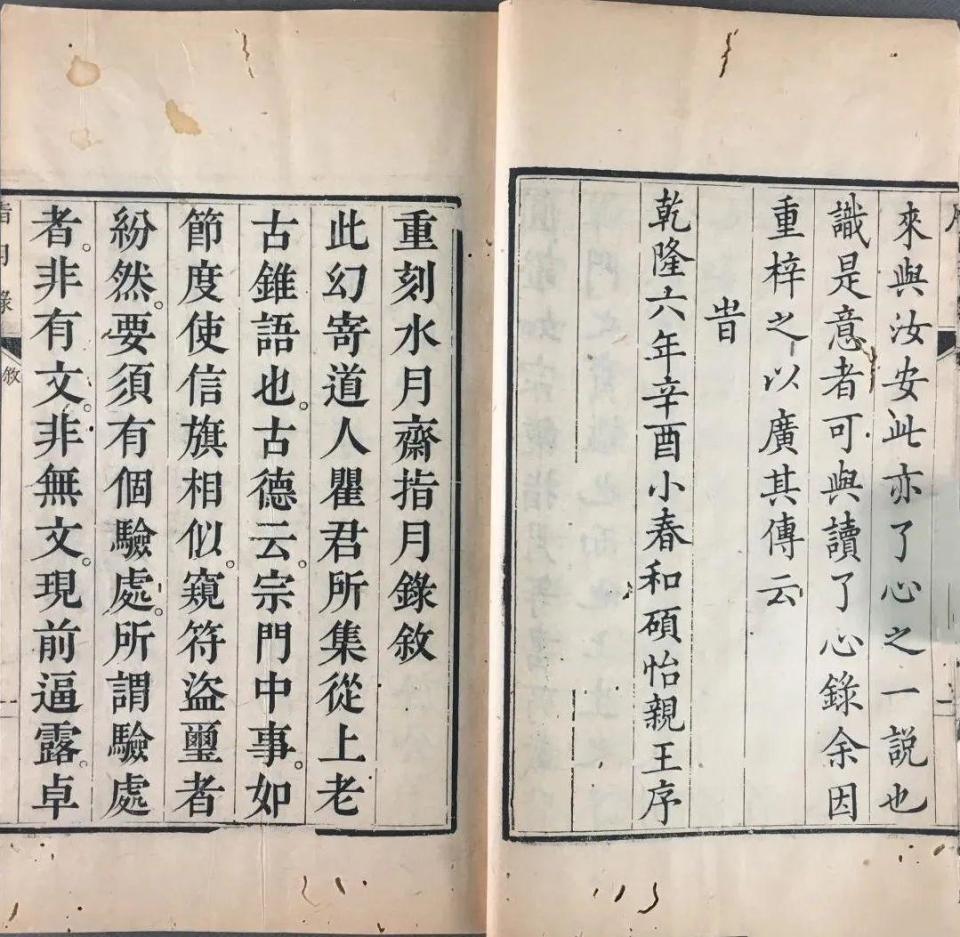 來與汝安此亦了心之一說也
識是意者可與讀了心錄余因
重梓之以廣其傳云
旹
乾隆六年辛酉小春和碩怡親王序
重刻水月齋指月錄敘
此幻寄道人瞿君所集從上老
古錐語也。古德云。宗門中事。如
節度使信旗相似。窺符盜璽者
紛然。要須有個驗處。所謂驗處
者。非有文。非無文。現前逼露。卓
指月錄
敘